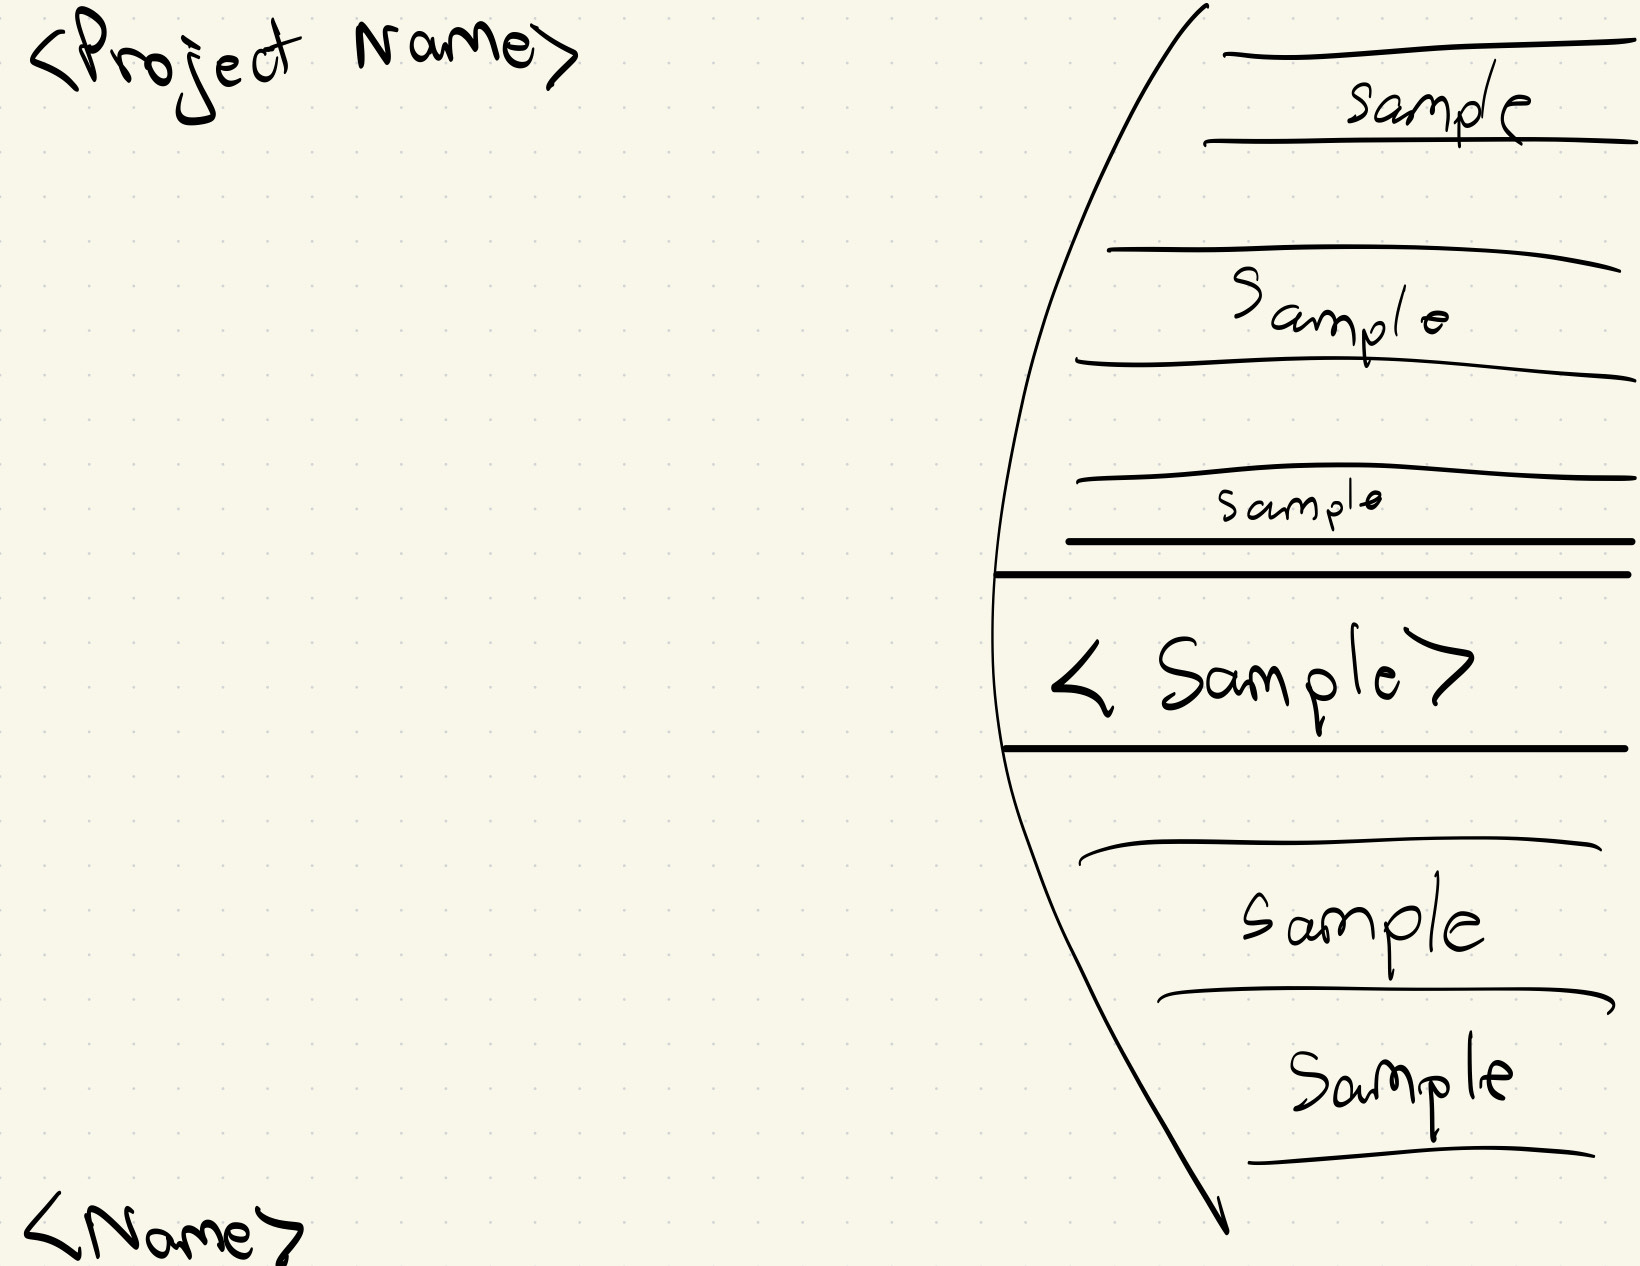 <Project Name>
sample
Sample
sample
< Sample >
sample
Sample
<Name>